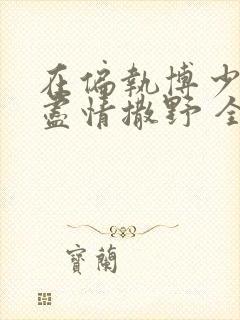 在偏執博少
盡情撒野 全
寶蘭